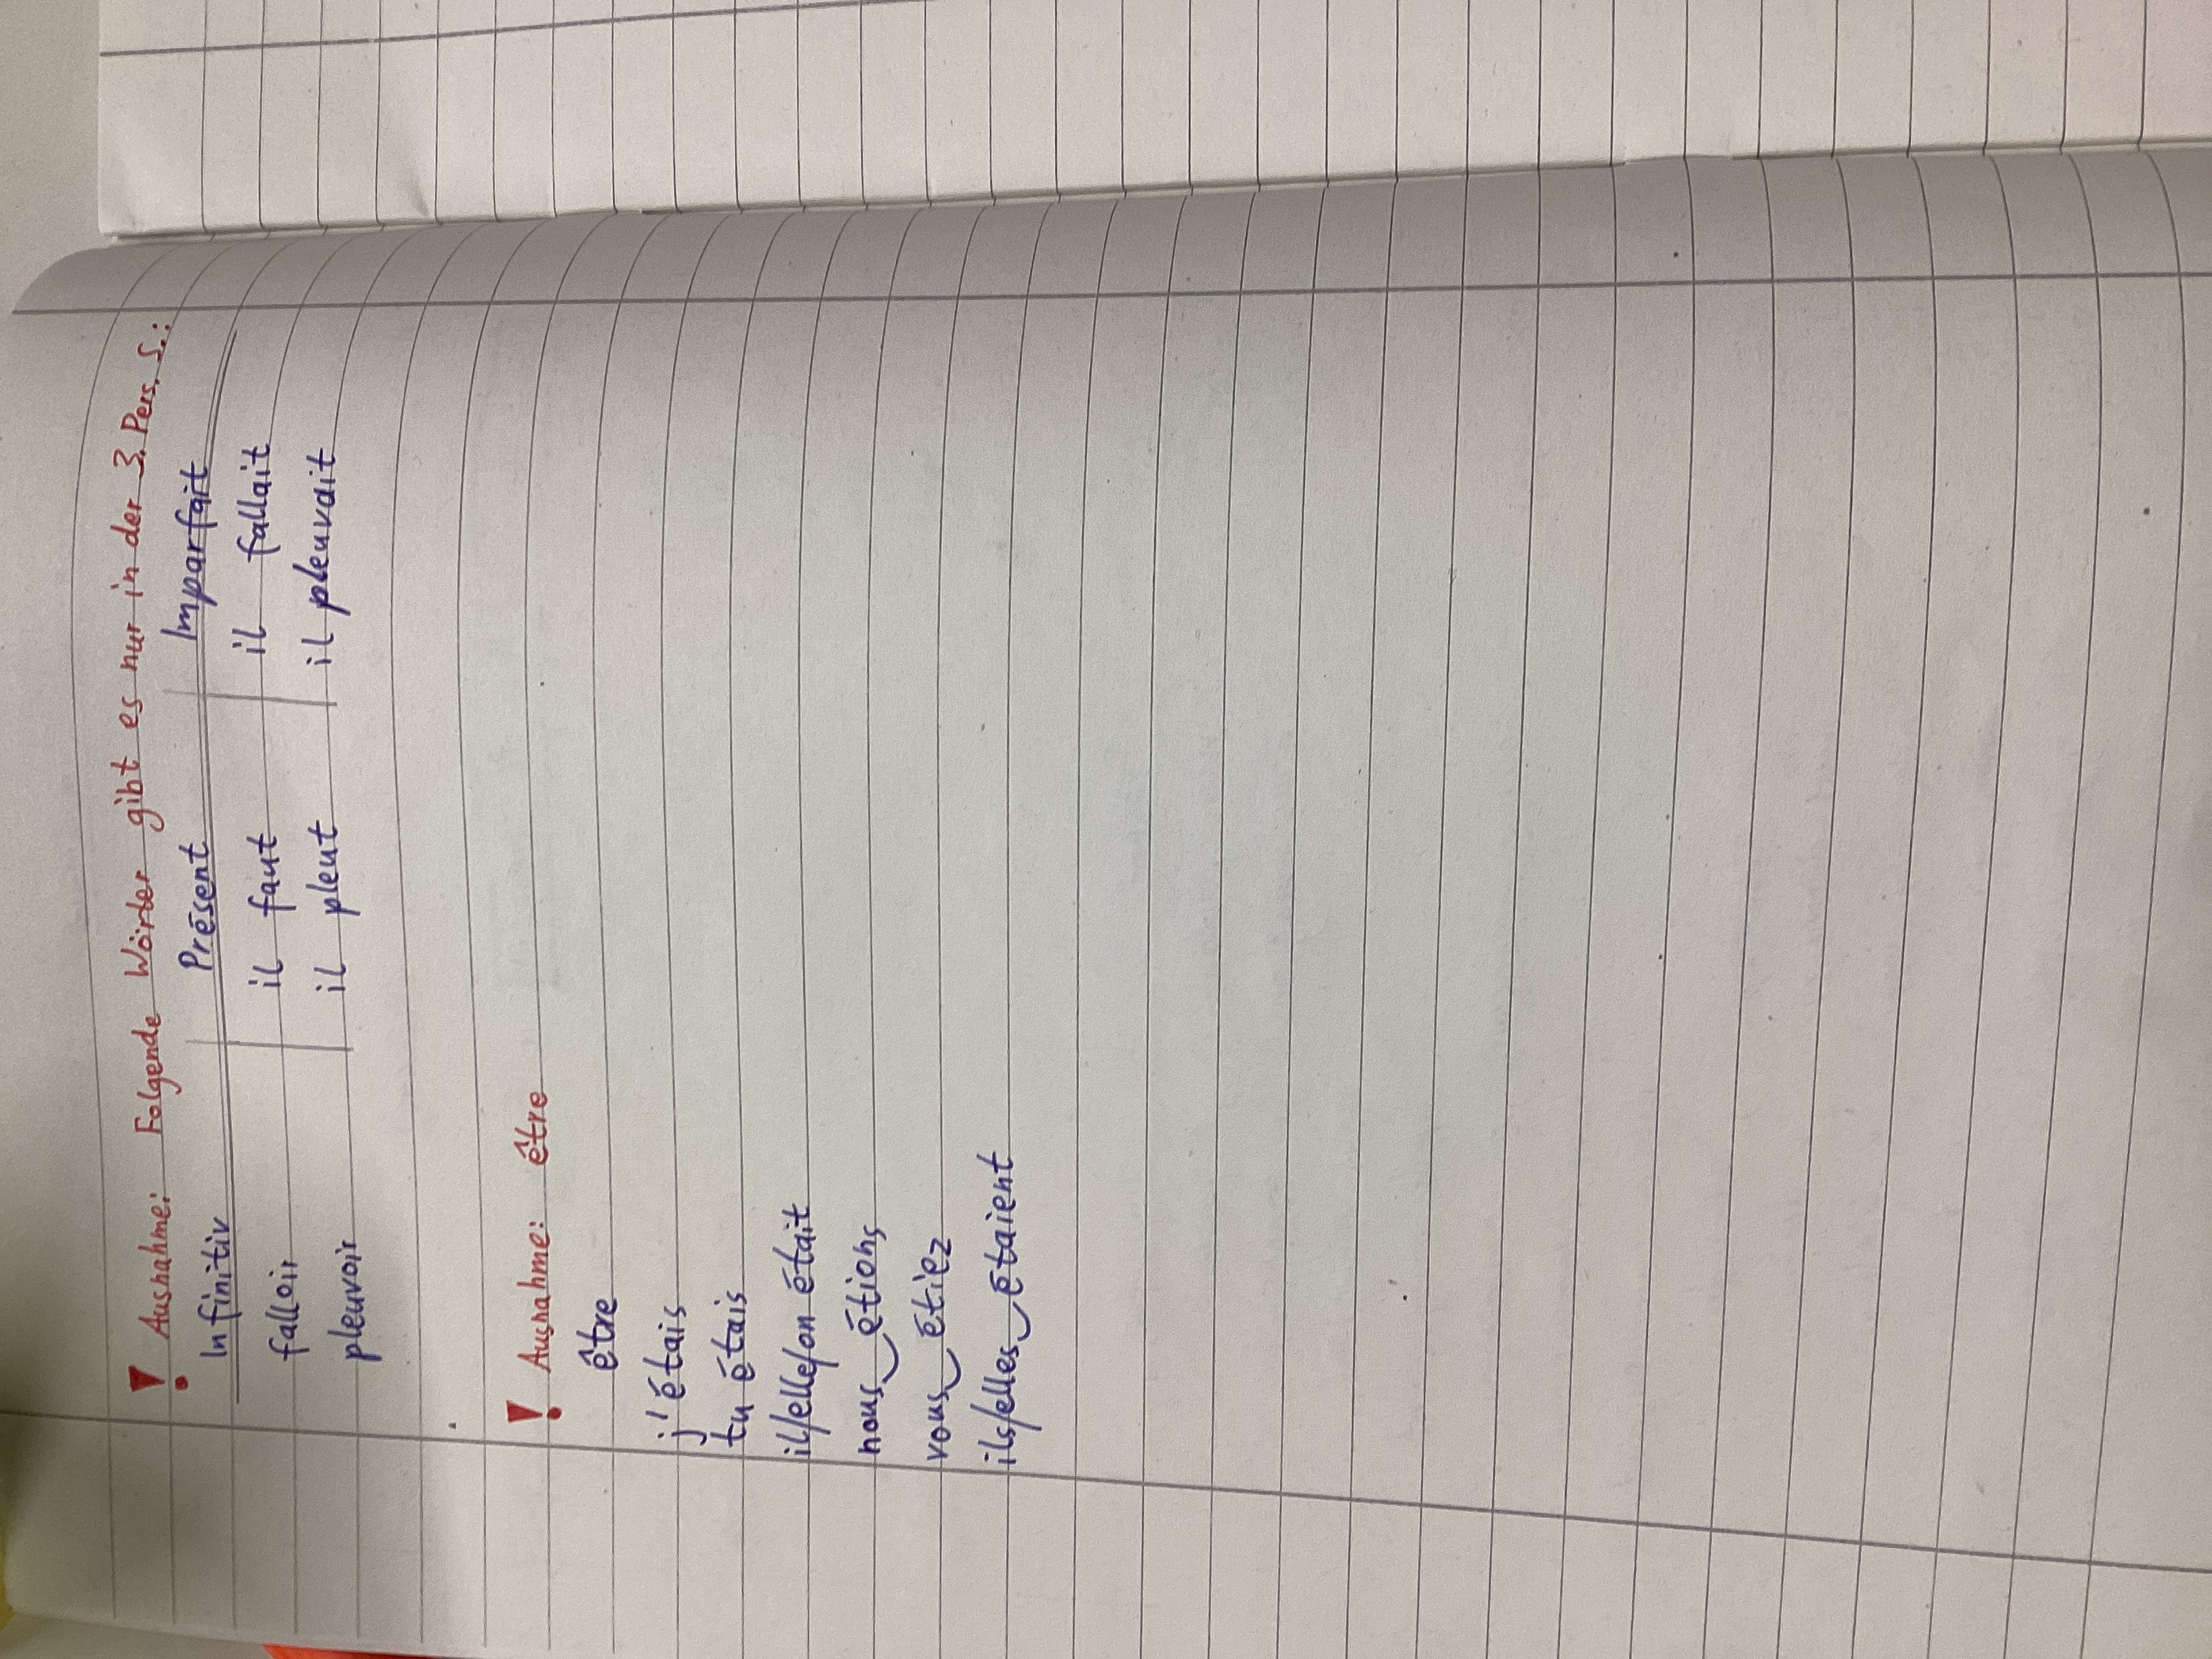 ! Ausnahme: Folgende Wörter gibt es nur in der 3. Pers. S.:
Infinitiv Présent Imparfait
falloir il faut il fallait
pleuvoir il pleut il pleuvait
! Ausnahme: être
être
j'étais
tu étais
il/elle/on était
nous étions
vous étiez
ils/elles étaient